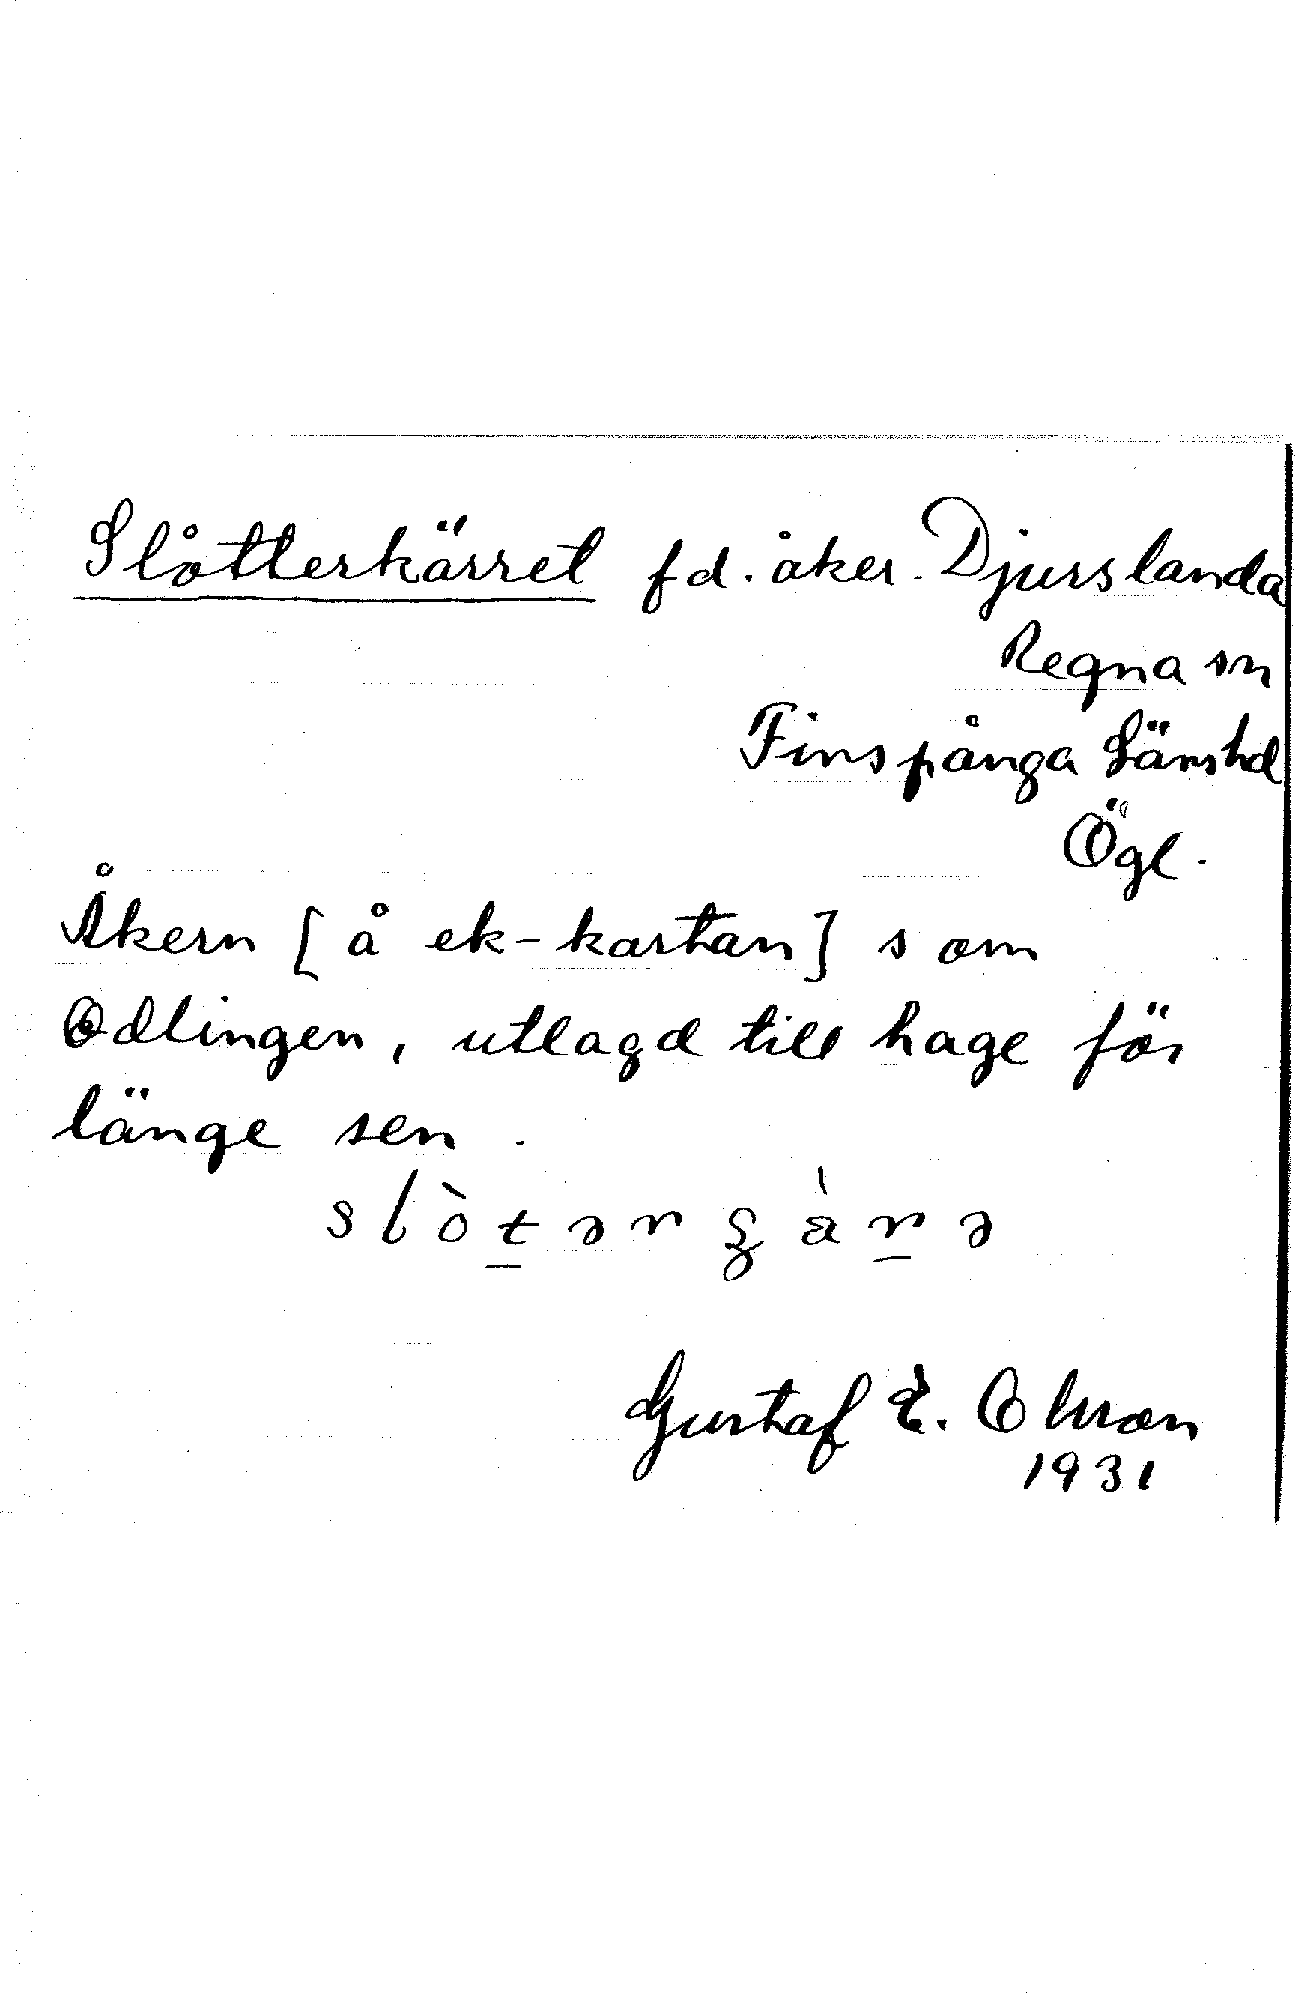 Slåtterkärret fd. åker. Djurslanda
Regna sn
Finspånga Länshd
Ögl.
Åkern [å ek-kartan] som
Odlingen, utlagd till hage för
länge sen.
slòt̲ərʂàr̲ə
Gustaf E. Olsson
1931